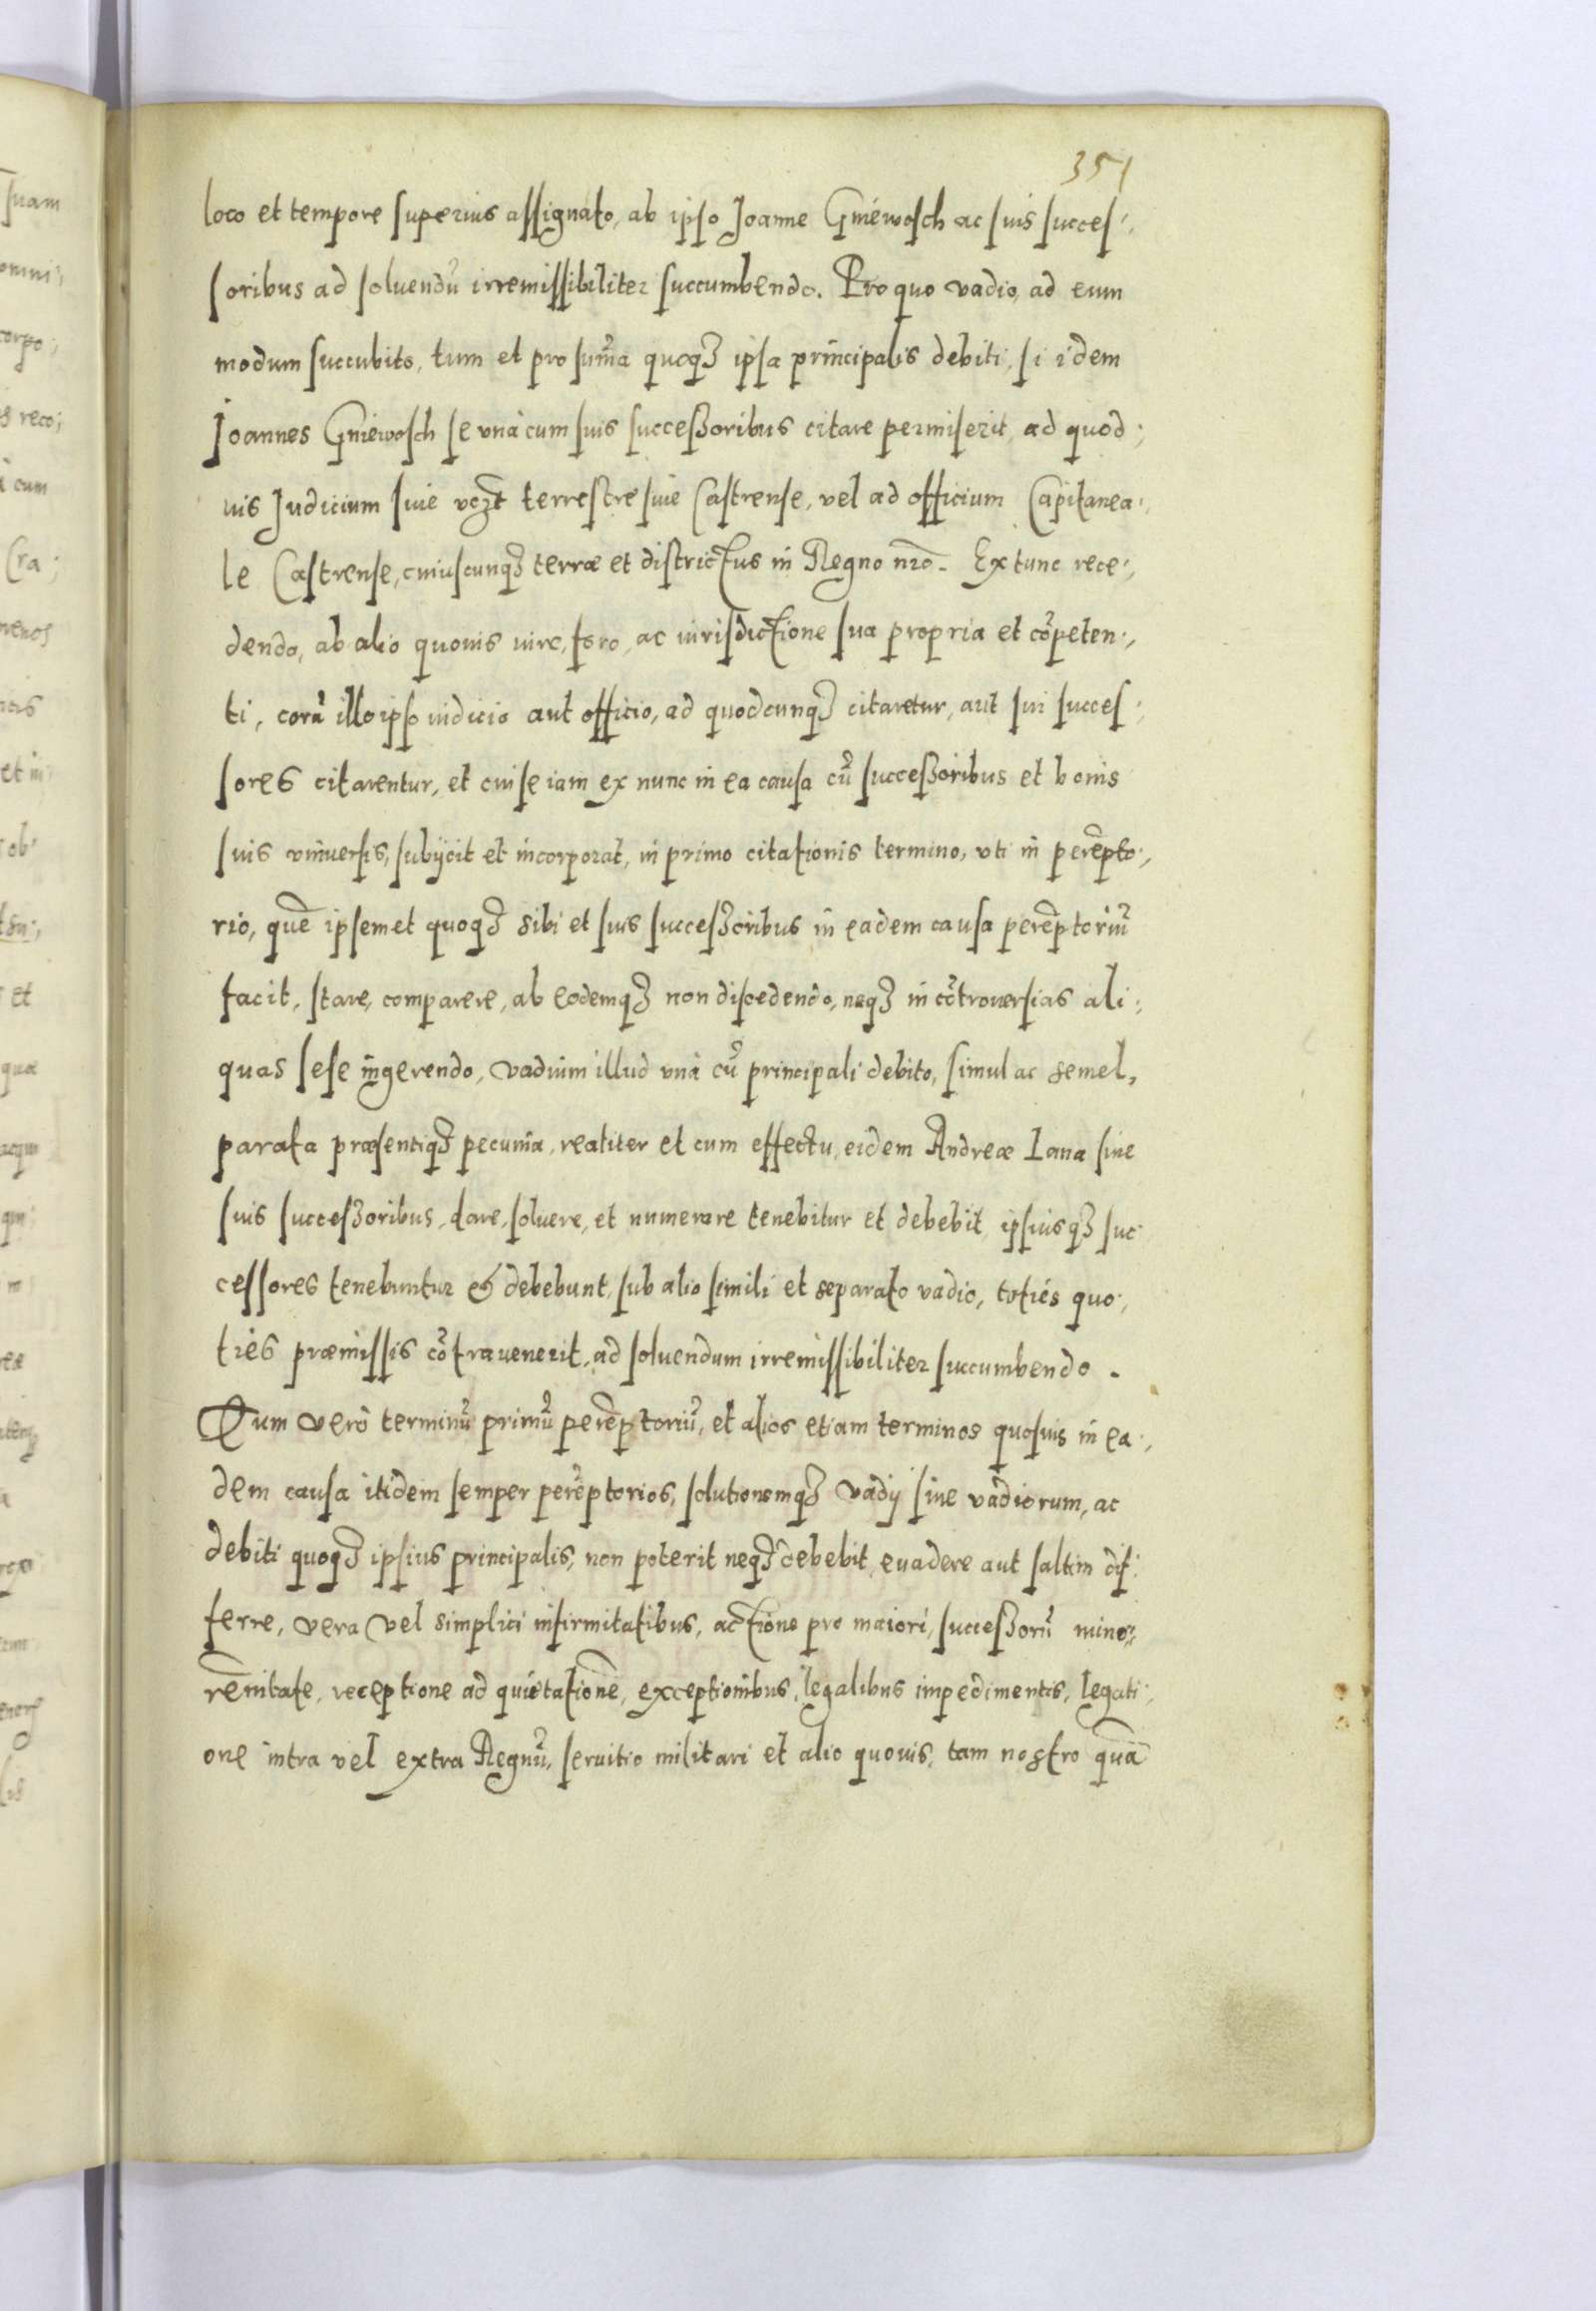 351
loco et tempore superius assignato, ab ipso Joanne Gniewosch ac suis succes:,
soribus ad soluendū irremissibiliter succumbendo. Pro quo vadio, ad eum
modum succubito, tum et pro sum̄a quoqꝫ ipsa principalis debiti, si idem
Joannes Gniewosch se vnà cum suis successoribus citare permiserit, ad quod:,
uis Judicium siue terrestre siue Castrense, vel ad officium Capitanea:,
le Castrense, cuiuscunqꝫ terræ et districtus in Regno nr̄o. Ex tunc rece:,
dendo, ab alio quouis iure, foro, ac iurisdictione sua propria et cōpeten:,
ti, corā illo ipso iudicio aut officio, ad quodcunqꝫ citaretur, aut sui succes:,
sores citarentur, et cui se iam ex nunc in ea causa cū successoribus et bonis
suis vniuersis, subijcit et incorporat, in primo citationis termino, vti in perēpto:,
rio, quē ipsemet quoqꝫ sibi et suis successoribus in eadem causa perēptoriū
facit, stare, comparere, ab eodemqꝫ non discedendo, neqꝫ in cōtrouersias ali:,
quas sese ingerendo, vadium illud vnà cū principali debito, simul ac semel,
parata præsentiqꝫ pecunia, realiter et cum effectu, eidem Andreæ Lana siue
suis successoribus, dare, soluere, et numerare tenebitur et debebit, ipsiusqꝫ suc
cessores tenebuntur & debebunt, sub alio simili et separato vadio, totiés quo:,
tiés præmissis cōtrauenerit, ad soluendum irremissibiliter succumbendo.
Quum verò terminū primū perēptoriū, et alios etiam terminos quosuis in ea:,
dem causa itidem semper perēptorios, solutionemqꝫ vadij siue vadiorum, ac
debiti quoqꝫ ipsius principalis, non poterit neqꝫ debebit, euadere aut saltim dif:
ferre, vera vel simplici infirmitatibus, actione pro maiori, successorū mino:,
rēnitate, receptione ad quietationē, exceptionibus, legalibus impedimentis, legati:,
one intra vel extra Regnū, seruitio militari et alio quouis, tam nostro quā